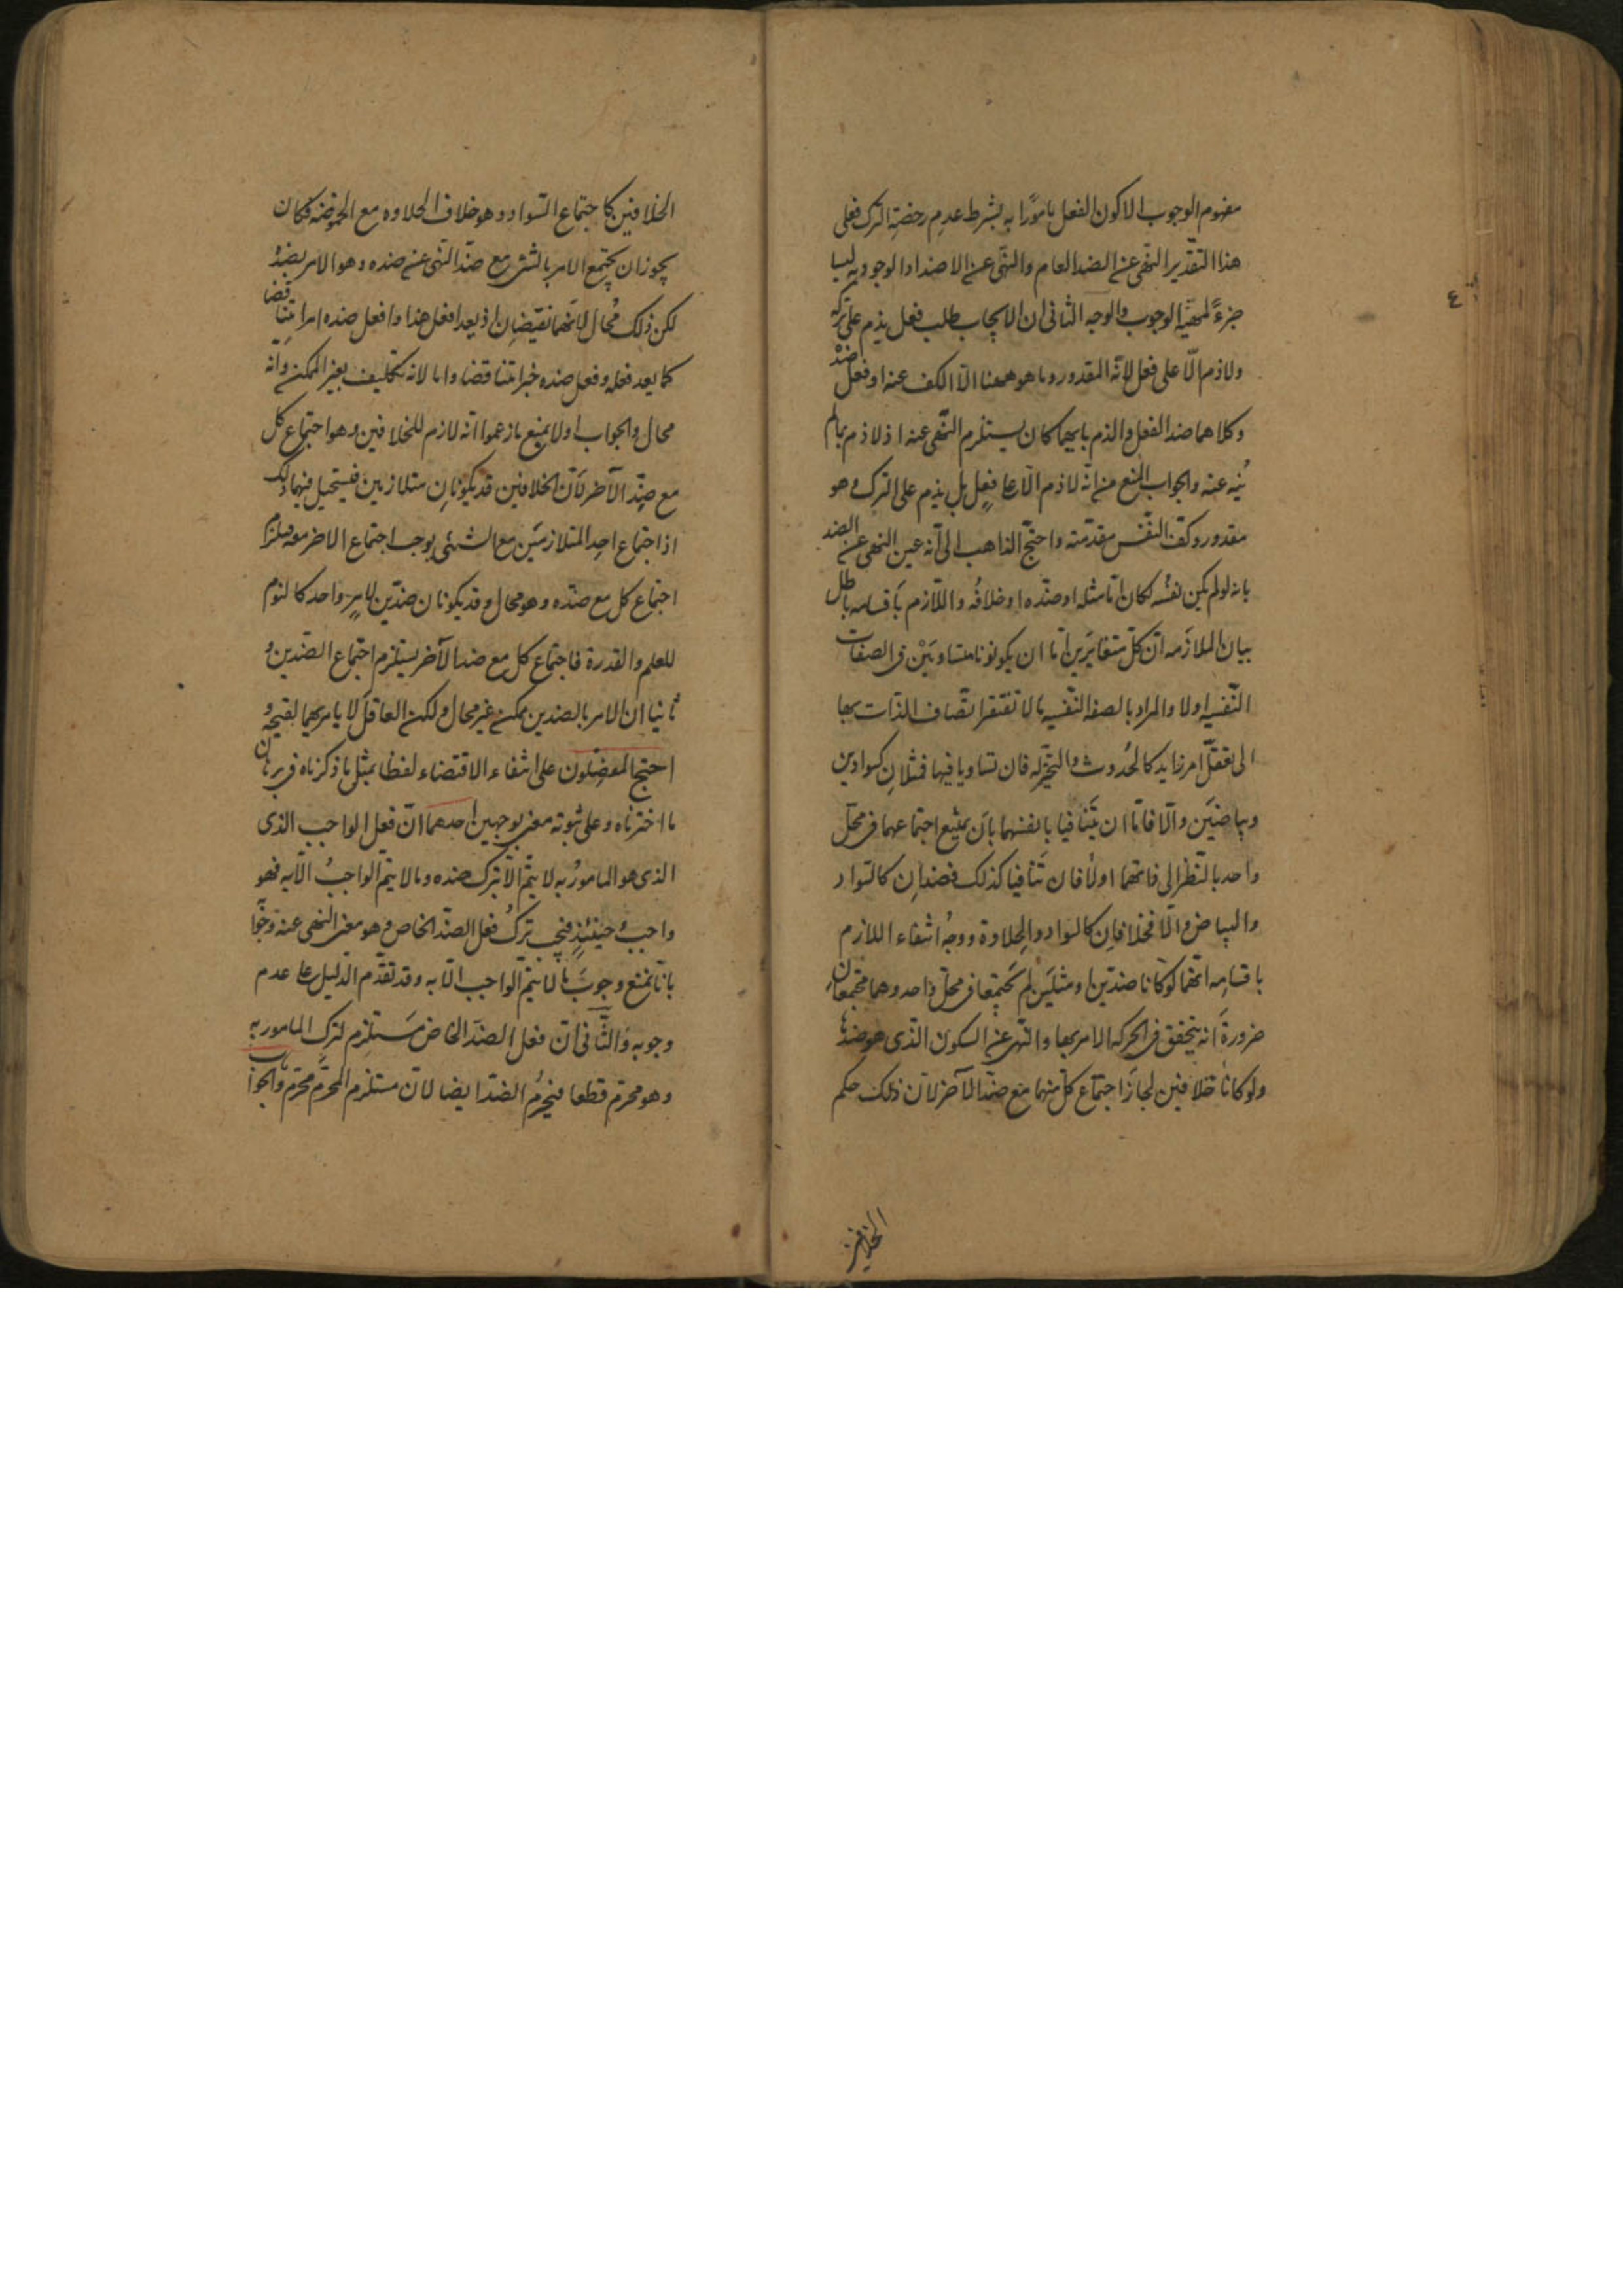 مفهوم الوجوب الا كون الفعل مامورًا به بشرط عدم رخصة الترك فعلى
هذا التقدير النهى عن الضد العام والنهى عن الاضداد الوجوديه ليسا
جزءً لمهيّة الوجوب والوجه الثانى ان الايجاب طلب فعل يذم على تركه
ولا ذم الّا على فعل لانّه المقدور وما هو ههنا الّا الكف عنه او فعل ضدّ
وكلاهما ضد الفعل والذم بايهما كان يستلزم النّهى عنه اذ لا ذم بما لم
يُنه عنه والجواب المنع من انّه لا ذم الّا على فعلٍ بل يذم على الترك وهو
مقدور وكفّ النّفس مقدّمته واحتجّ الذاهب الى انّه عين النهى عن الضد
بانه لو لم يكن نفسُه لكان امّا مثله او ضدّه او خلافُه واللّازم باقسامه باطل
بيان الملازَمه انّ كلّ متغايرَين امّا ان يكونوتا متساويَيْن فى الصفات
النّفسيه او لا والمراد بالصفه النّفسيه ما لا تفتقر اتّصاف الذّات بها
الى تعقّل امر زايد كالحُدوث والتحيّز له فان تساويا فيها فمثلانِ كسوادين
وبياضَين والّا فامّا ان يتَنافيا بانفسهما بان يمتنع اجتماعهما فى محلّ
واحد بالنّظر الى ذاتهما او لا فان تَنافيا كذلك فضدانِ كالسّواد
والبياض والّا فخلافانِ كالسّواد والحِلاوة ووجهُ انتفاء اللازم
باقسامِه انّهما لو كانا ضدّين او مثلَين لم يجتمِعا فى محلّ واحد وهما مجتمعان
ضرورةَ انه يتحقق فى الحركه الامر بها والنّهى عن السكون الّذى هو ضدّها
ولو كانا خلافين لجازَ اجتماع كلّ منهما مع ضدّ الآخر لانّ ذلك حكم
الخلافين
٤
الخلافين كاجتماع السّواد وهو خلاف الحلاوه مع الحموضه فكان
يجوز ان يجتمع الامر بالشئ مع ضدّ النّهى عن ضده وهو الامر بضدّه
لكن ذلك مُحال لانّهما نقيضانِ اذ يعد افعل هذا وافعل ضده امرا متناقضا
كما يعد فعله وفعل ضده خبرا متناقضا واما لانه تكليف بغير الممكن وانّه
محال والجواب اولا بمنع ما زعموا انّه لازم للخلافين وهو اجتماع كلّ
مع ضِدّ الآخر لانّ الخلافين قد يكونانِ متلازمين فيستحيل فيهما ذلك
اذ اجتماع احدِ المتلازمَين مع الشيئى يوجب اجتماع الاخر معه فيلزم
اجتماع كل مع ضدّه وهو محال وقد يكونان ضدّين لامرٍ واحد كالنوم
للعلم والقدرة فاجتماع كل مع ضد الآخر يستلزم اجتماع الضدين و
ثانيا ان الامر بالضدين ممكن غير محال ولكن العاقل لا يامر بهما لقبحه و
احتج المفصّلون على انتفاء الاقتضاء لفظا بمثل ما ذكرناه فى برهان
ما اخترناه وعلى ثبوته معنى بوجهين احدهما انّ فعل الواجب الذى
الذى هو المامورُ به لا يتمّ الّا بترك ضده وما لا يتمّ الواجبُ الّا به فهو
واجب وحينئذٍ فيجب تركُ فعل الضدّ الخاص وهو معنى النهى عنه وجوابه
بانّا نمنع وجوبَ ما لا يتمّ الواجب الّا به وقد تقدّم الدّليل على عدم
وجوبه والثّانى انّ فعل الضدّ الخاصّ مَستلزم لترك المامور به
وهو محرّم قطعا فيحرُم الضدّ ايضا لانّ مستلزم المحرّم محرّم والجواب